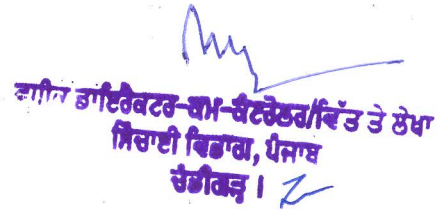 ਵਧੀਕ ਡਾਇਰੈਕਟਰ-ਕਮ-ਕੰਟਰੋਲਰ/ਵਿੱਤ ਤੇ ਲੇਖਾ
ਸਿੰਚਾਈ ਵਿਭਾਗ, ਪੰਜਾਬ
ਚੰਡੀਗੜ੍ਹ ।